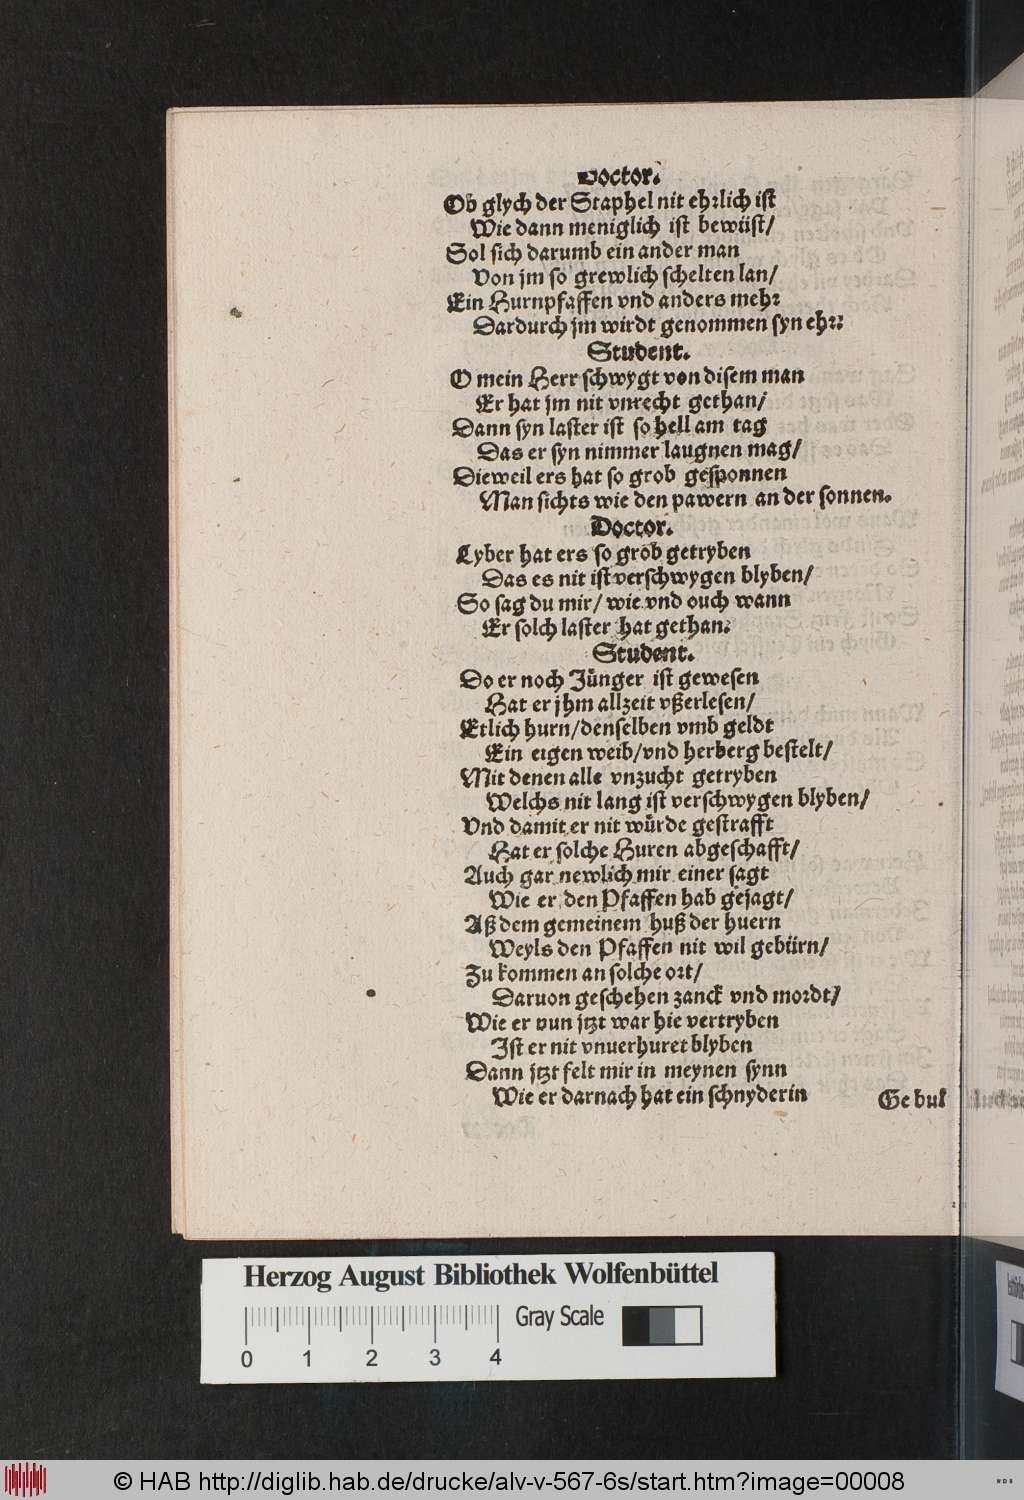 Doctor.
Ob glych der Staphel nit ehrlich ist
Wie dann meniglich ist bewüst/
Sol sich darumb ein ander man
Von jm so grewlich schelten lan/
Ein Hurnpfaffen vnd anders mehr
Dardurch jm wirdt genommen syn ehr?
Student.
O mein Herr schwygt von disem man
Er hat jm nit vnrecht gethan/
Dann syn laster ist so hell am tag
Das er syn nimmer laugnen mag/
Dieweil ers hat so grob gesponnen
Man sichts wie den pawern an der sonnen.
Doctor.
Lyber hat ers so grob getryben
Das es nit ist verschwygen blyben/
So sag du mir/ wie vnd ouch wann
Er solch laster hat gethan?
Student.
Do er noch Jünger ist gewesen
Hat er jhm allzeit vßerlesen/
Etlich hurn/denselben vmb geldt
Ein eigen weib/vnd herberg bestelt/
Mit denen alle vnzucht getryben
Welchs nit lang ist verschwygen blyben/
Vnd damit er nit würde gestrafft
Hat er solche Huren abgeschafft/
Auch gar newlich mir einer sagt
Wie er den Pfaffen hab gejagt/
Aß dem gemeinem huß der huern
Weyls den Pfaffen nit wil gebürn/
Zu kommen an solche ort/
Daruon geschehen zanck vnd mordt/
Wie er vun jtzt war hie vertryben
Ist er nit vnuerhuret blyben
Dann jtzt felt mir in meynen synn
Wie er darnach hat ein schnyderin
Ge bul
Herzog August Bibliothek Wolfenbüttel
Gray Scale
0 1 2 3 4
© HAB http://diglib.hab.de/drucke/alv-v-567-6s/start.htm?image=00008